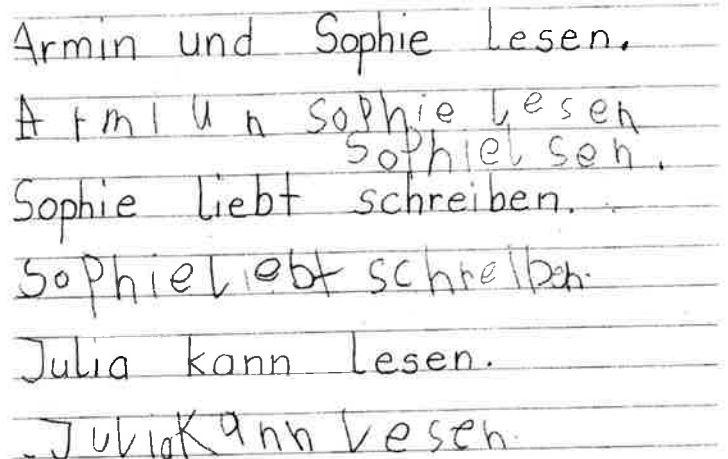 Armin und Sophie lesen.
A r m i U n Sophie Lesen
SophieL sen.
Sophie liebt schreiben.
SophieLiebt schreiben.
Julia kann lesen.
JuLiaKann Lesen.